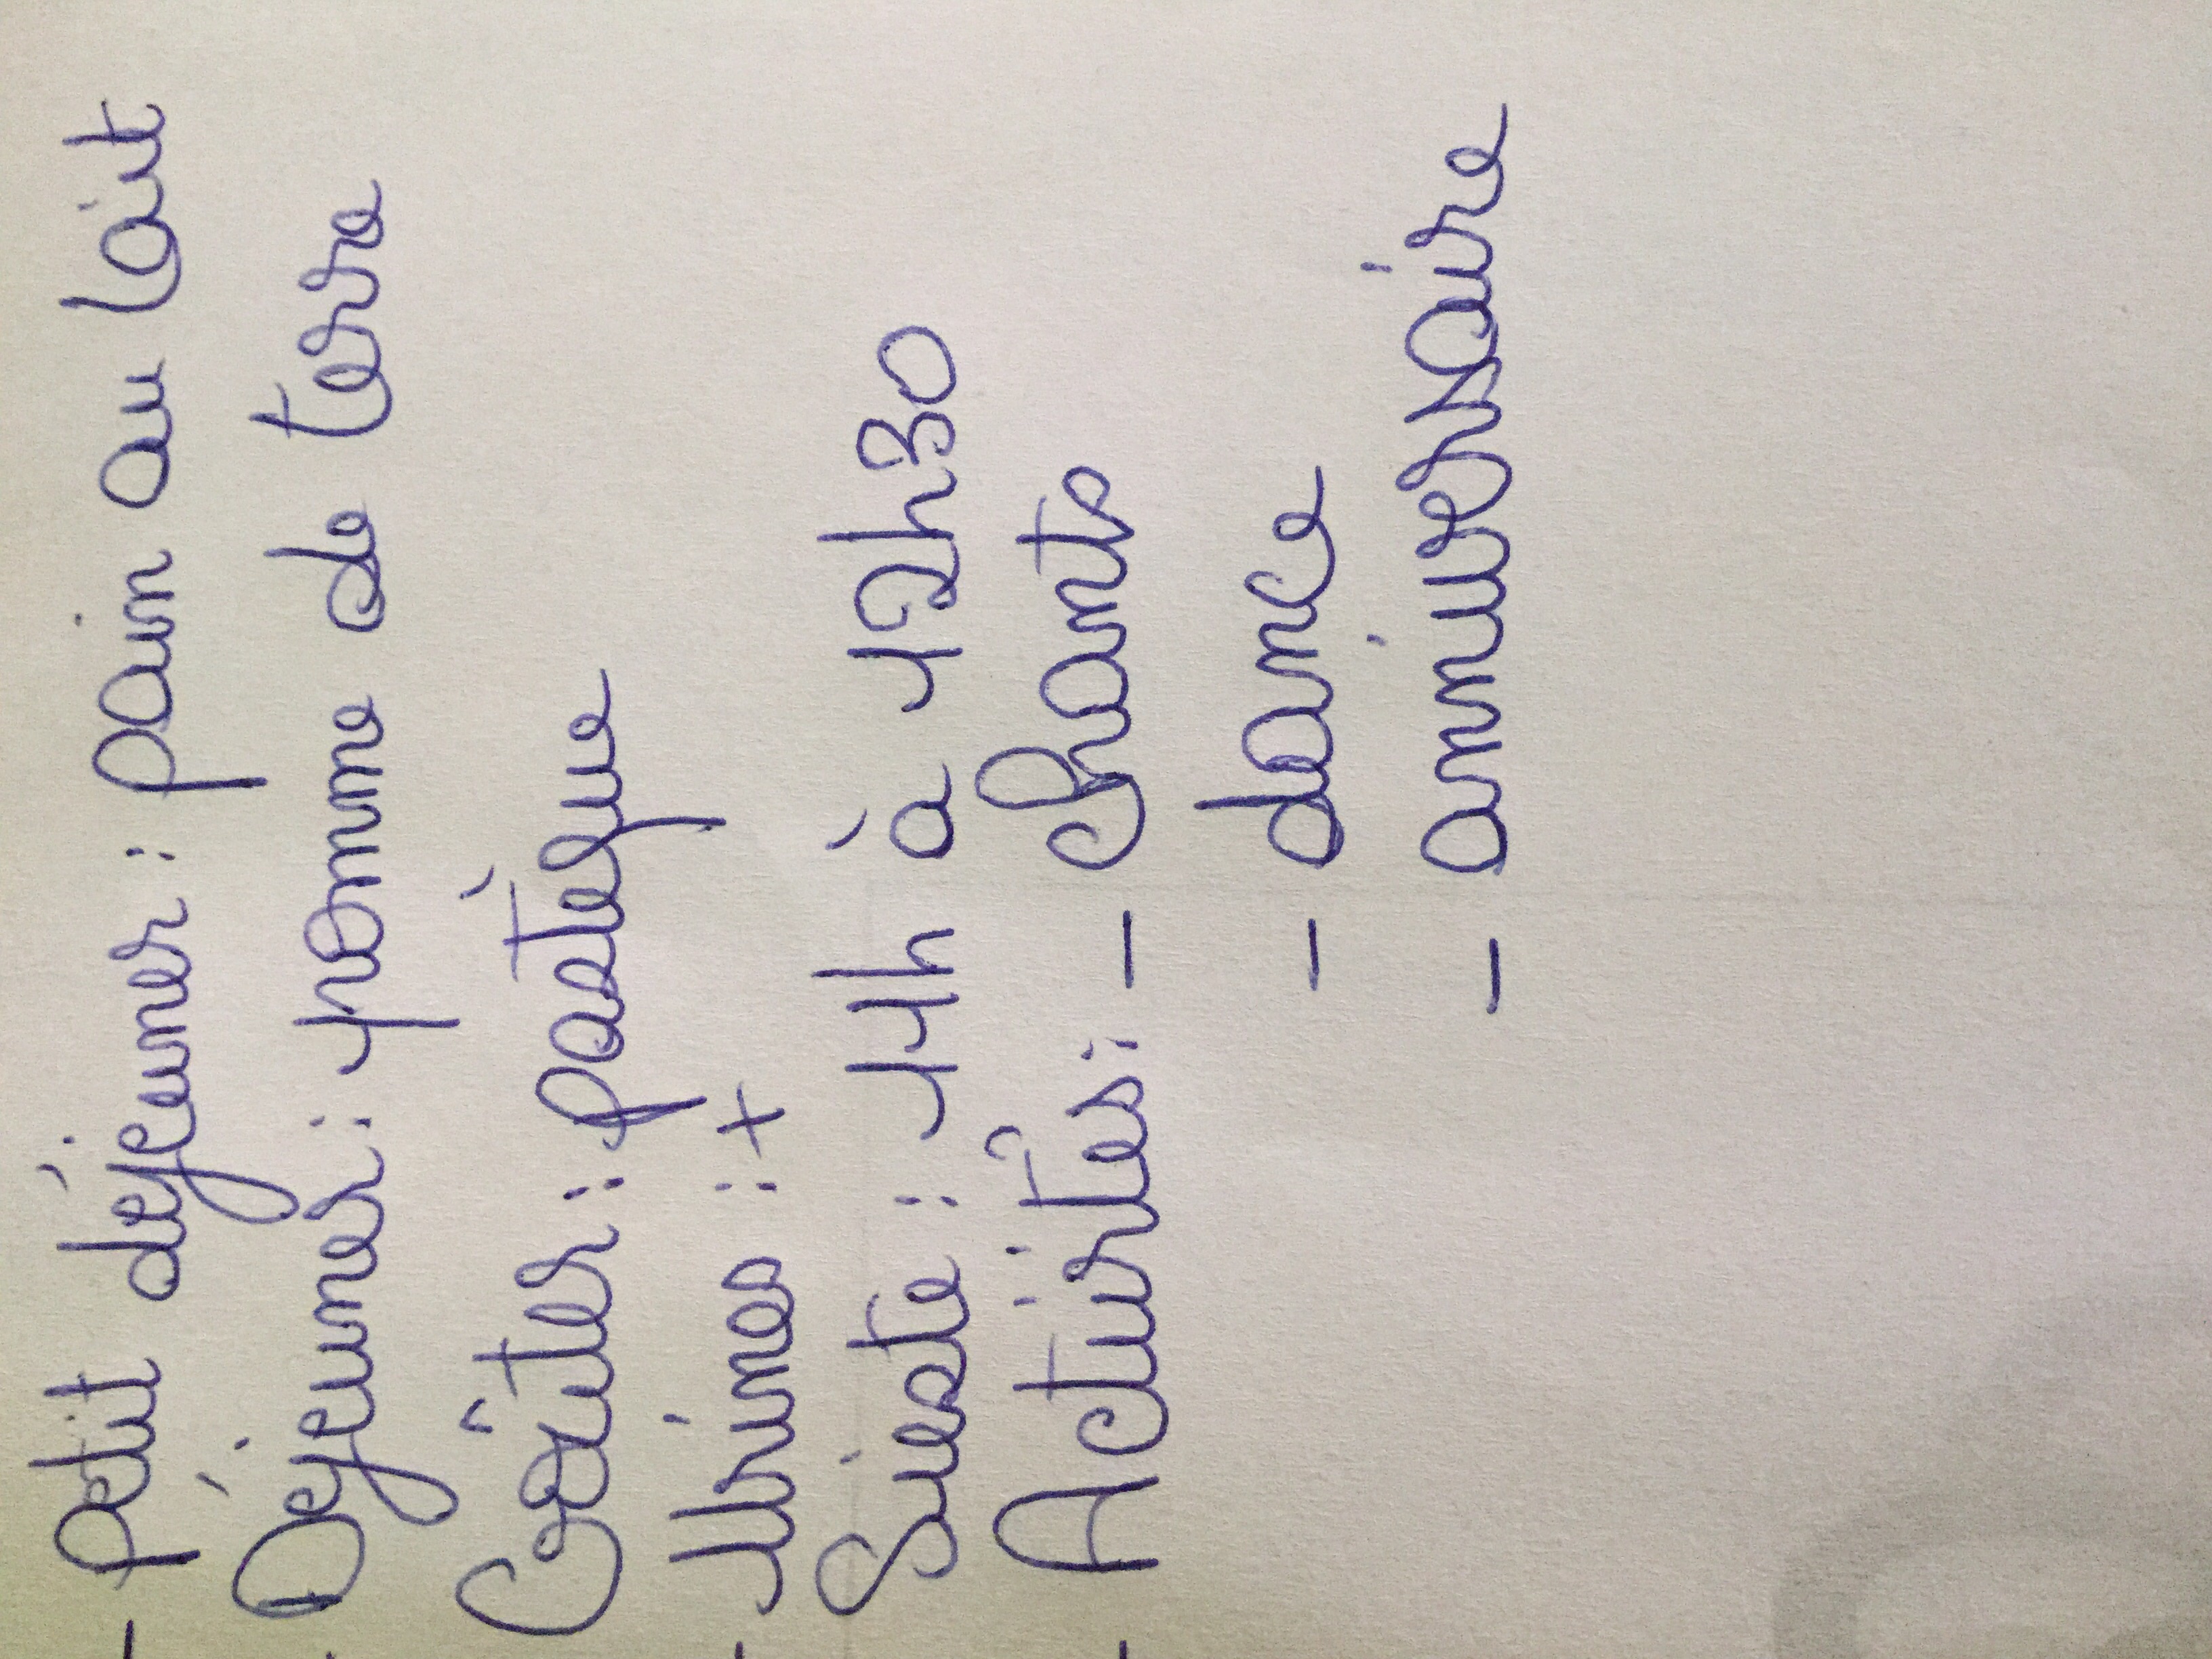 - Petit déjeuner : pain au lait
- Déjeuner : pomme de terre
Goûter : pastèque
- Urines : +
Sieste : 11h à 12h30
- Activités : - chants
- dance
- anniversaire